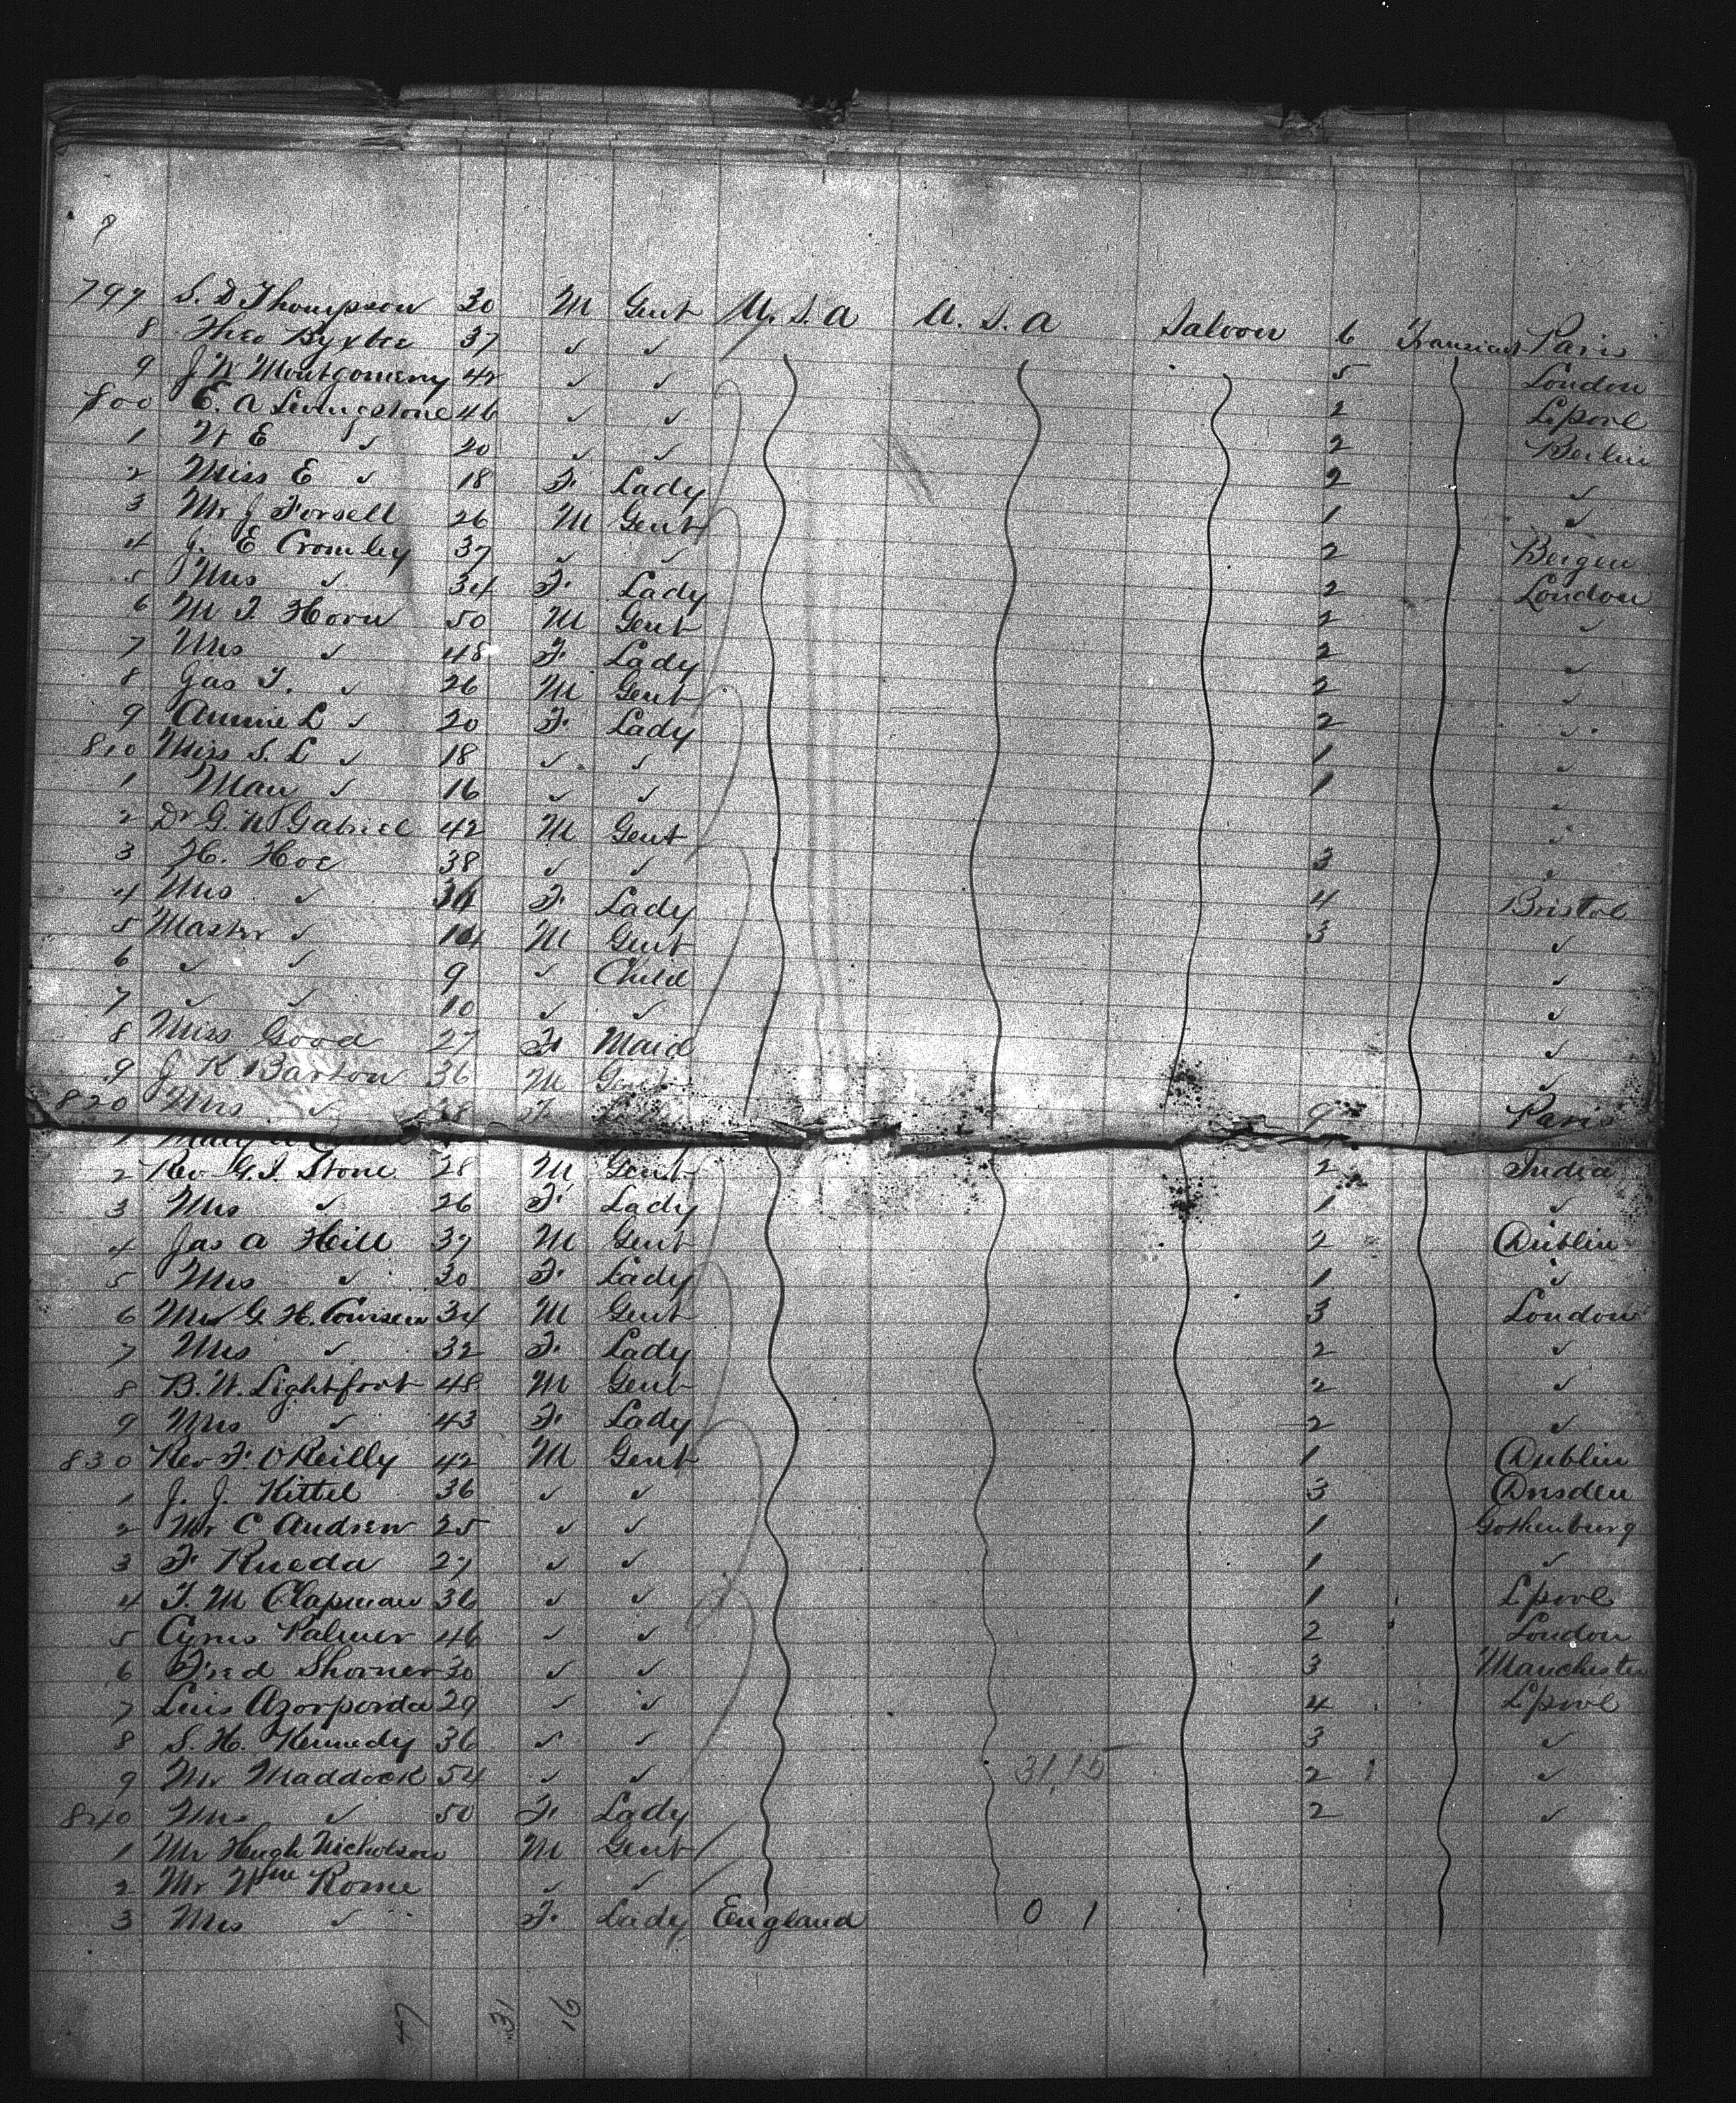 797 S. D Thompson 30 M Gent U. S. A U. S. A Saloon 6 Transient Paris
8 Theo Byxbee 37 ✓ ✓ 5 London
9 J W Montgomery 42 ✓ ✓ 2 Lpool
800 E. A Livingstone 46 ✓ ✓ 2 Berlin
1 W E ✓ 20 ✓ ✓ 2 ✓
2 Miss E ✓ 18 F. Lady 1 ✓
3 Mr J Forsell 26 M Gent 2 Bergen
4 J. E Cromley 37 ✓ ✓ 2 London
5 Mrs ✓ 34 F. Lady 2 ✓
6 M T. Horn 50 M Gent 2 ✓
7 Mrs ✓ 48 F. Lady 2 ✓
8 Jas T. ✓ 26 M Gent 2 ✓
9 Annie L ✓ 20 F. Lady 1 ✓
810 Miss S. L ✓ 18 ✓ ✓ 1 ✓
1 ✓ 16 ✓ ✓ ✓
2 Dr G. W Gabriel 42 M Gent 3 ✓
3 H. Hoe 38 ✓ ✓ 4 Bristol
4 Mrs ✓ F. Lady 3 ✓
5 Master ✓ 14 M Gent ✓
6 ✓ ✓ 9 ✓ Child ✓
7 ✓ ✓ 10 ✓ ✓ ✓
8 Miss Good 27 F. Maid ✓
9 J K Barton 36 M Gent 9 Paris
820 Mrs ✓ F.
1 Mary
2 Rev G. I. Stone 28 M Gent 2 India
3 Mrs ✓ 26 F. Lady 1 ✓
4 Jas A Hill 37 M Gent 2 Dublin
5 Mrs ✓ 30 F. Lady 1 ✓
6 Mr G. H. 34 M Gent 3 London
7 Mrs ✓ 32 F. Lady 2 ✓
8 B. W. Lightfoot 48 M Gent 2 ✓
9 Mrs ✓ 43 F. Lady 2 ✓
830 Rev F. O'Reilly 42 M Gent 1 Dublin
1 J. J. Kittel 36 ✓ ✓ 3 Dresden
2 Mr C Andrew 25 ✓ ✓ 1 Gothenburg
3 F. Rueda 27 ✓ ✓ 1 ✓
4 T. M Clapman 36 ✓ ✓ 1 Lpool
5 Cyrus Palmer 46 ✓ ✓ 2 London
6 Fred Shorner 30 ✓ ✓ 3 Manchester
7 Luis Azorperda 29 ✓ ✓ 4 Lpool
8 S. H. Kennedy 36 ✓ ✓ 3 ✓
9 Mr Maddock 54 ✓ ✓ 31.15 2 1 ✓
840 Mrs ✓ 50 F. Lady 2 ✓
1 Mr Hugh Nicholson M Gent
2 Mr Wm Rome ✓ ✓
3 Mrs ✓ F. Lady England 0 1
47 31 16